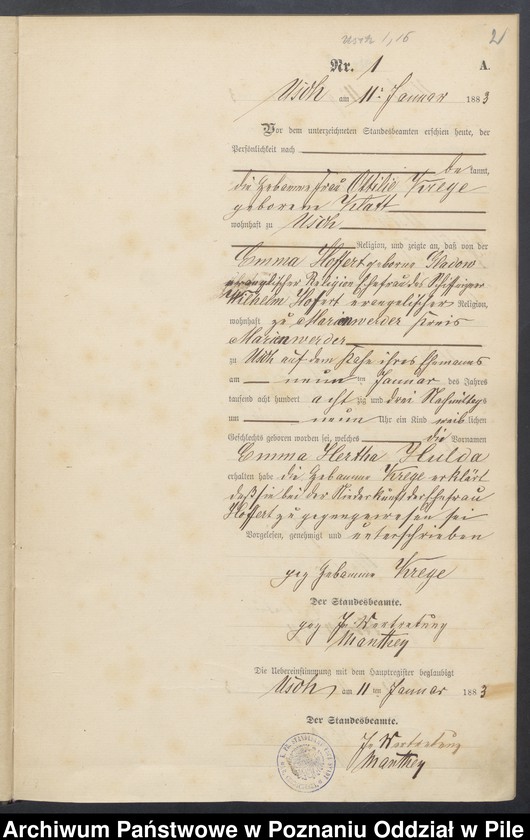 Usch 1, 16
2
Nr. 1 A.
Usch am 11ten Januar 1883
Vor dem unterzeichneten Standesbeamten erschien heute, der
Persönlichkeit nach
bekannt,
die Hebamme Frau Ottilie Krege
geborene Klatt
wohnhaft zu Usch
Religion, und zeigte an, daß von der
Emma Hoffert geborne Radow
evanglischer Religion Ehefrau des Schiffeigner
Wilhelm Hofert evangelischer Religion,
wohnhaft zu Marienwerder Kreis
Marienwerder
zu Usch auf dem Kahn ihres Ehemanns
am neunten Januar des Jahres
tausend acht hundert achtzig und drei Nachmittags
um neun Uhr ein Kind weiblichen
Geschlechts geboren worden sei, welches die Vornamen
Emma Hertha Hulda
erhalten habe die Hebamme Krege erklärt
daß sie bei der Niederkunft der Ehefrau
Hoffert zugegen gewesen sei
Vorgelesen, genehmigt und unterschrieben
gez Hebamme Krege
Der Standesbeamte.
gez In Vertretung
Manthey
Die Uebereinstimmung mit dem Hauptregister beglaubigt
Usch am 11ten Januar 1883
Der Standesbeamte.
In Vertretung
Manthey
Archiwum Państwowe w Poznaniu Oddział w Pile